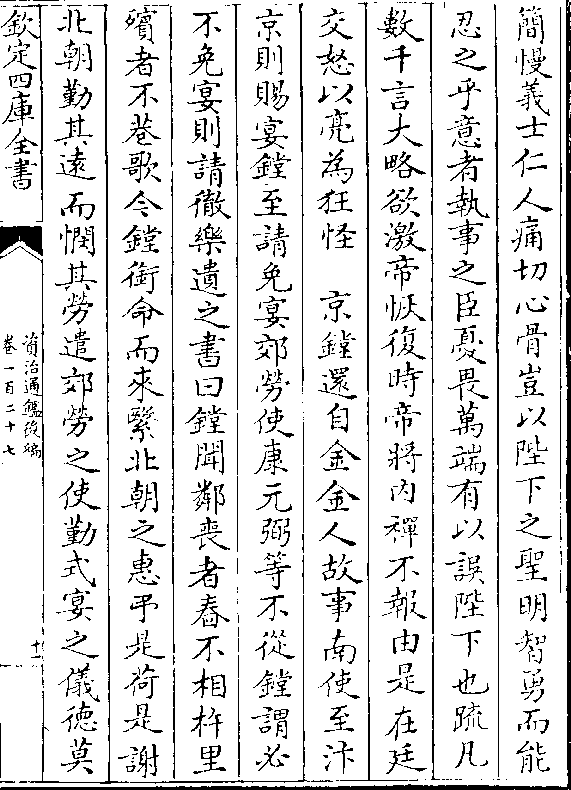 簡慢義士仁人痛切心骨豈以陛下之聖明智勇而能
忍之乎意者執事之臣憂畏萬端有以誤陛下也疏凡
數千言大略欲激帝恢復時帝將内禪不報由是在廷
交怒以亮為狂怪　京鏜還自金金人故事南使至汴
京則賜宴鏜至請免宴郊勞使康元弼等不從鏜謂必
不免宴則請徹樂遺之書曰鏜聞鄰喪者舂不相杵里
殯者不巷歌今鏜銜命而來繄北朝之惠弔是荷是謝
北朝勤其逺而憫其勞遣郊勞之使勤式宴之儀德莫
欽定四庫全書
資治通鑑後編
卷一百二十七
十一